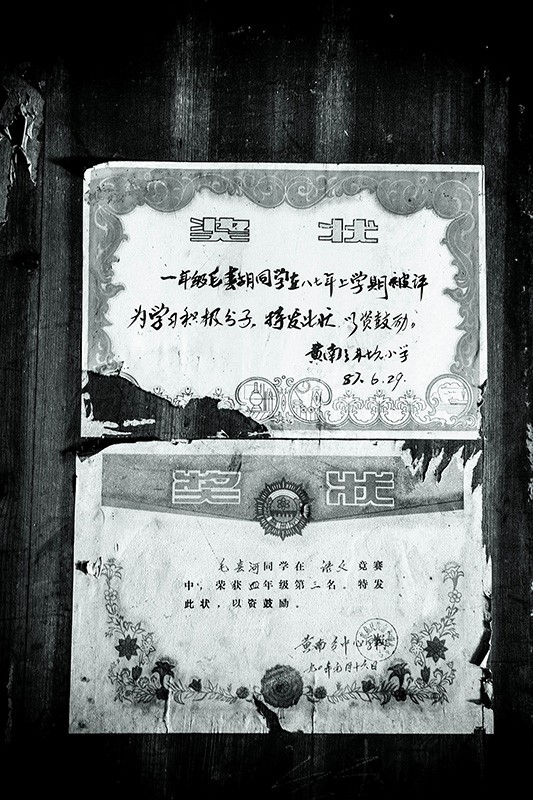 奖 状
一年级毛喜胡同学在八七年上学期被评
为学习积极分子。特发此状 以资鼓励。
黄南 小学
87.6.29.
奖 状
毛喜河同学在 语文 竞赛
中，荣获四年级第三名。特发
此状，以资鼓励。
黄南 中心学校
九〇年 月十六日